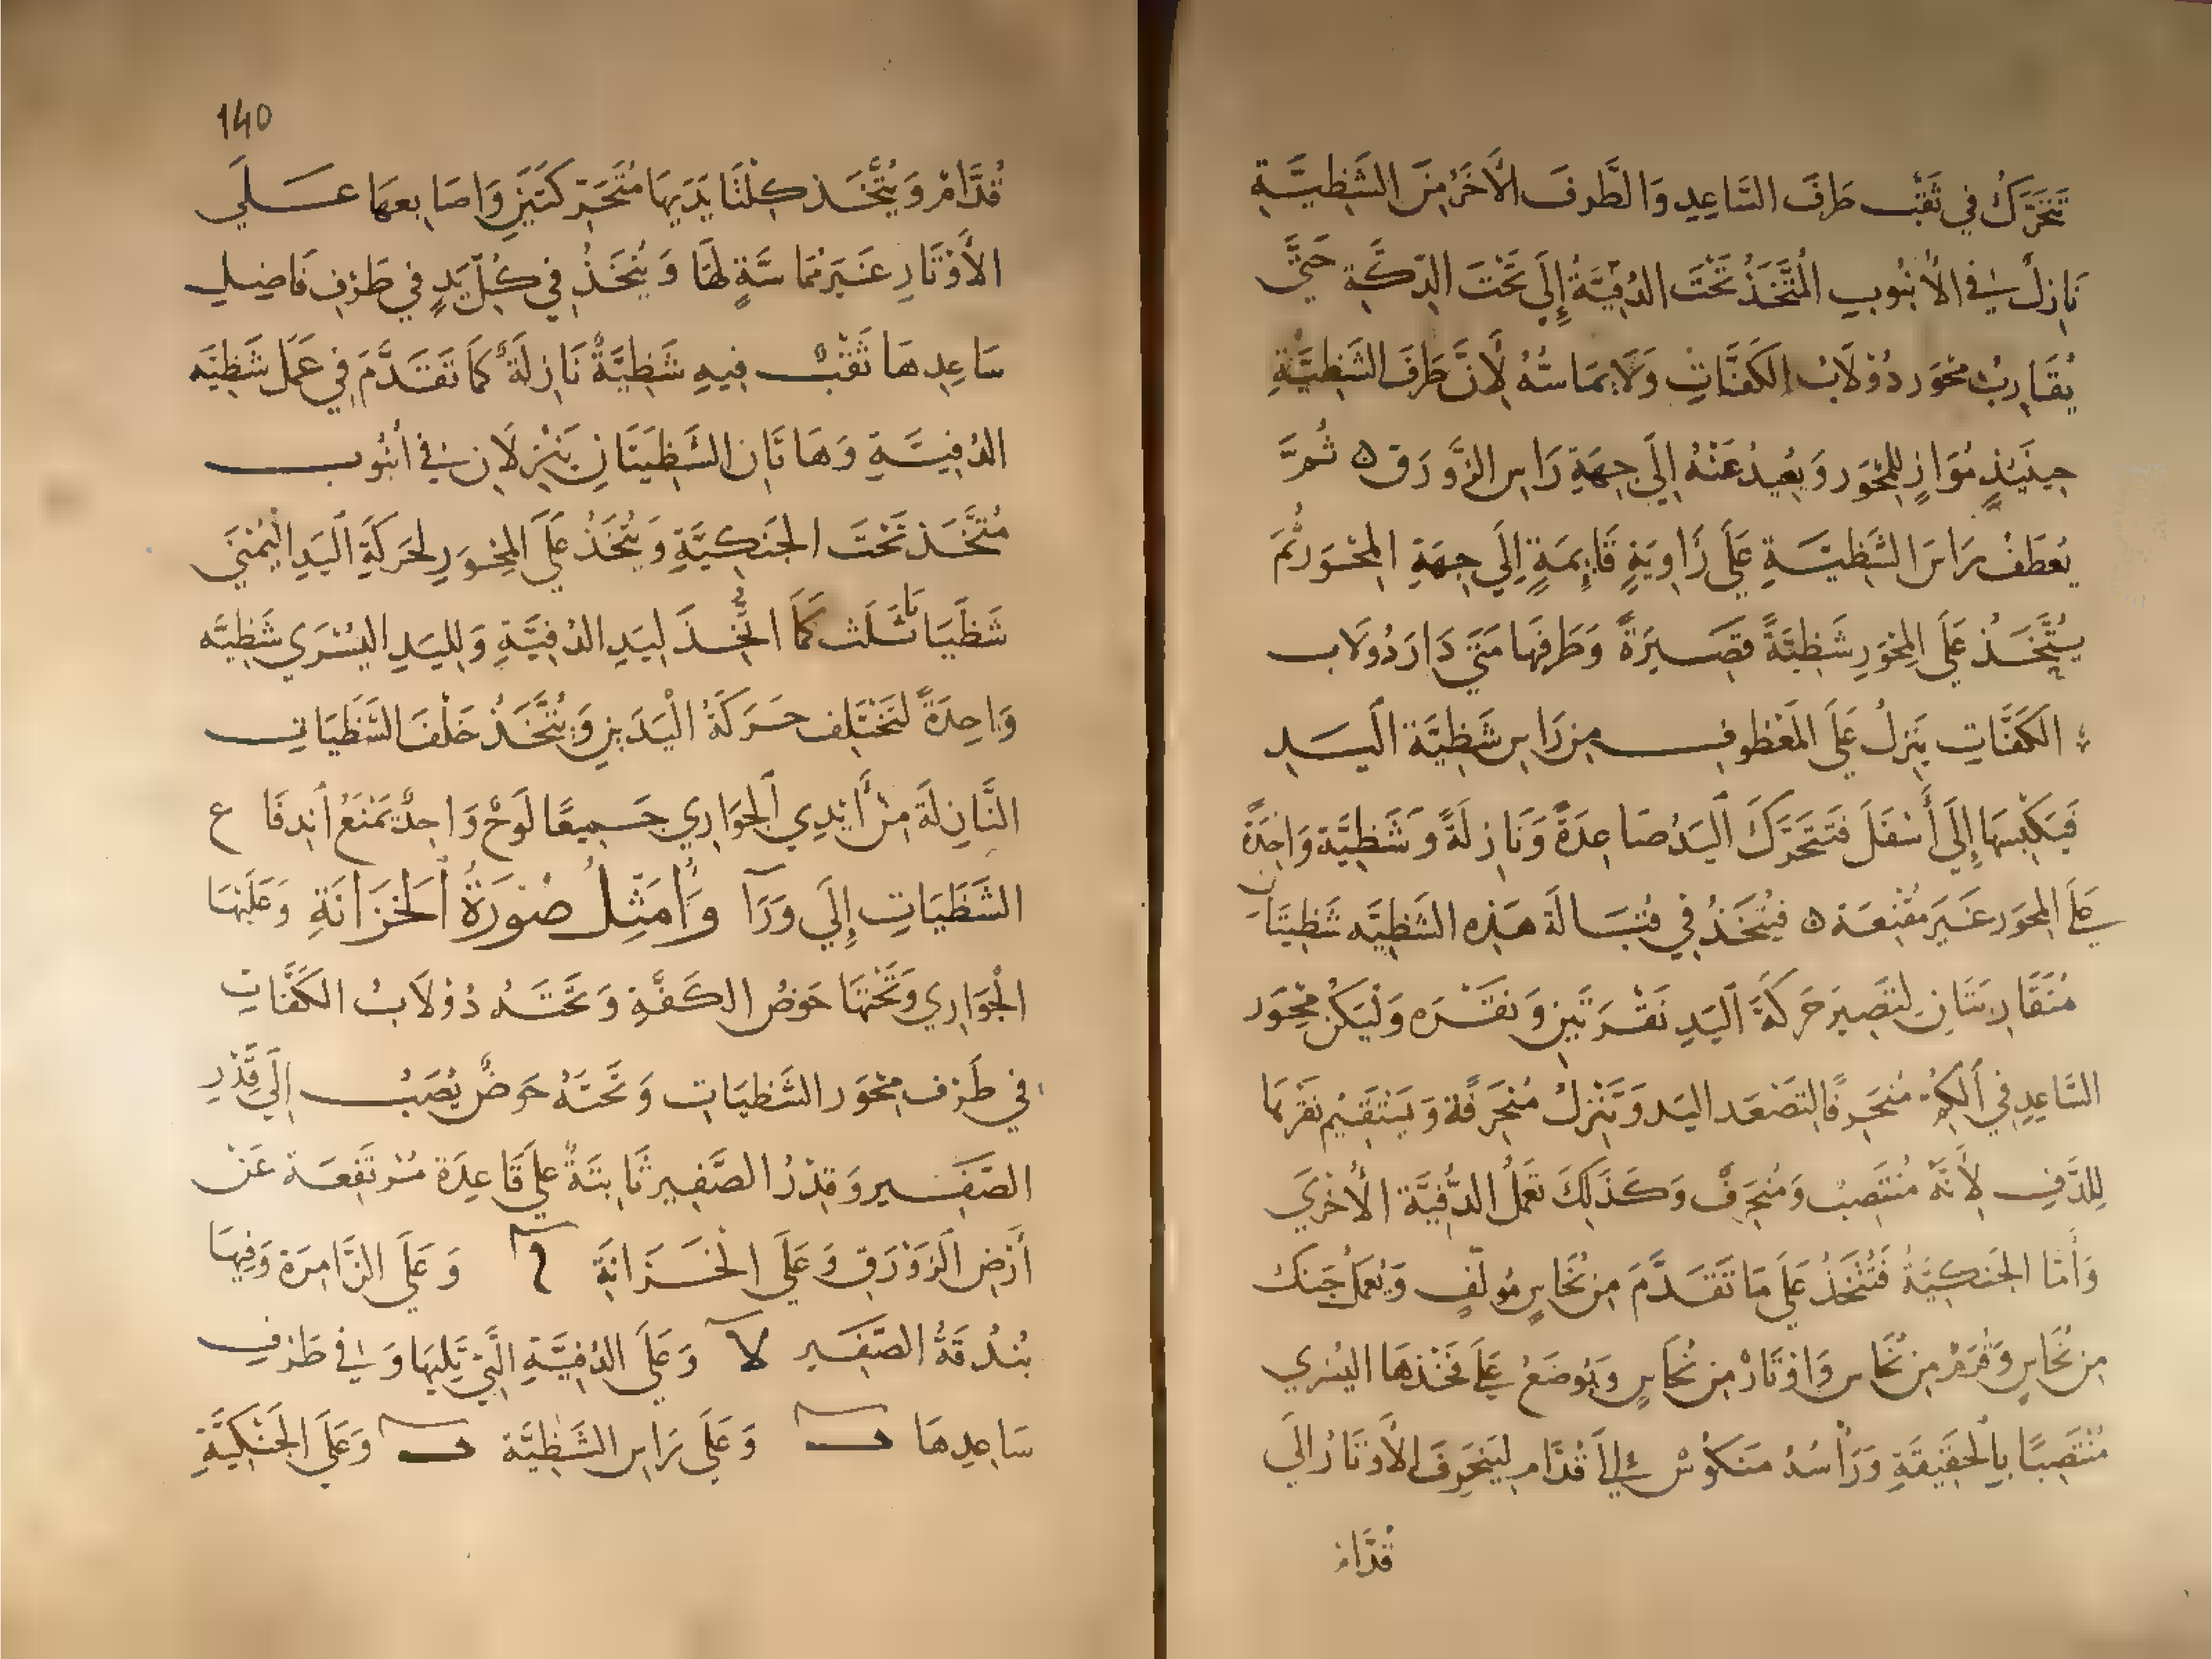 تتحَرَّكُ في ثَقْب طَرَفَ السَّاعِدِ وَالطَّرف الأَخَرُ مِنَ الشَظِيَّةِ
نَازِلٌ في الأُنْبُوبِ المُتَّخَذُ تَحْتَ الدُفِيَّةُ إِلَى تَحْتَ الدِّكَّةِ حَتَّى
يُقَارِبُ مِحْوَر دُوْلَابُ الكَفَّاتِ وَلَا يُمَاسُّهُ لِأَنَّ طَرَفَ الشَظِيَّةِ
حِينَئِذٍ مُوَازٍ لِلمِحْوَر وَبَعِيدُ عَنْهُ إِلَى جِهَةِ رَاسِ الزَّورَق ه ثُمَّ
يُعطَفُ رَاسَ الشَّظِيَّةِ عَلَى زَاوِيَةٍ قَايِمَةٍ إِلَى جِهَةِ المِحْوَر ثُمَّ
يُتَّخَذُ عَلَى المِحْوَرِ شَظِيَّةً قَصِيرَةً وَطَرفِهَا مَتَى دَارَ دُولَاب
الكَفَّاتِ يَنزِلُ عَلَى المَعْطُوفِ مِن رَاسِ شَظِيَّة اليَدِ
فَيَكْبِسهَا إِلَى أَسْفَلَ فَتَتَحَرَّكَ اليَدُ صَاعِدَةً وَنَازِلَةً وَشَظِيَّة وَاحِدَةً
عَلَى المِحوَر غَيرَ مُقْنِعَة ه فيُتَّخَذُ في قُبَالَة هَذِه الشَظِيَّه شَظِيَتَان
مُتَقَارِبَتَانِ لِتَصِيرَ حَرَكَةَ اليَدِ نَقْرَتَينِ وَنَقْرَه وَليَكُنْ مِحْوَر
السَّاعِدِ في الكُمِّ مُنحَرِفًا لِتَصْعَد اليَد وَتَنْزِلُ مُنْحَرِفَة وَيَسْتَقِيم نَقرهَا
لِلدَّفِ لِأَنَّهُ مُنْتَصِبٌ وَمُنحَرِفٌ وَكَذَلِكَ تُعمَلُ الدُّفِيَّة الأُخْرَي
وَأَمَّا الجَنكِيَّةُ فَتُتَّخَذُ عَلَى مَا تَقَدَّمَ مِن نُحَاسٍ مُولَّفٍ وَيُعمَلُ جَنك
مِن نُحَاسٍ وَفَرَمٌ مِن نُحَاس وَاوْتَارٌ مِن نُحَاسٍ وَيُوضَعُ عَلَى فَخْذهَا اليُسْرَي
مُنْتَصِبًا بِالحَقِيقَةِ وَرَأْسُهُ مَنكُوسٌ إلى قُدَّامٍ لِيَنحَرِفَ الأَوتَارُ إلَي
قُدَّام
140
قُدَّامْ وَيُتَّخَذ كِلْتَا يَدَيهَا مُتَحَرِّكَتَينِ وَاصَابِعهَا عَلَي
الأَوْتَارِ غَيرَ مُمَاسَّةٍ لَهَا وَيُتَّخَذُ في كُلِّ يَدٍ في طَرَفِ فَاضِلِ
سَاعِدِهَا ثَقْبٌ فِيهِ شَظِيَّةٌ نَازِلَةٌ كَمَا تَقَدَّمَ في عَمَل شَظِيَّه
الدُفِيَّةِ وَهَاتَانِ الشَّظِيَتَانِ يَنْزِلَانِ في أُنْبُوبِ
مُتَّخَذ تَحْتَ الجَنكِيَّةِ وَيُتَّخَذُ عَلَى المِحْوَرِ لحَرَكَةِ اليَدِ اليُمْنَي
شَظَيَاتٌ ثَلَث كَمَا اتُّخِذَ لِيَدِ الدُفِيَّةِ وَلِليَدِ اليُسْرَي شَظِيَّه
وَاحِدَةً لتَخْتَلِف حَرَكَةُ اليَدَينِ وَيُتَّخَذُ خَلْفَ الشَّظَيَاتِ
النَّازِلَةَ مِنْ أَيْدِي الجَوَارِي جَمِيعًا لَوحٌ وَاحِدٌ يَمْنَعُ انْدِفَاع
الشَّظَيَاتِ إِلَى وَرَآ وَأُمَثِلُ صُوْرَةُ الخَزَانَةِ وَعَلَيْهَا
الجَوَارِي وَتَحْتِهَا حَوضُ الكَفَّةِ وَتَحْتَهُ دُوْلَابُ الكَفَّاتِ
في طَرَفِ مِحْوَر الشَّظَيَاتِ وَتَحْتَهُ حَوضٌ يُصَبُّ إِلَى قِدْرِ
الصَّفِير وَقِدْرُ الصَّفِير ثَابِتَةٌ عَلى قَاعِدَة مُرْتَفِعَة عَنْ
أَرْضِ الزَوْرَقِ وَعَلَى الخَزَانَةِ م وَعَلَى الزَّامِرَة وَفِيهَا
بُنْدُقَةُ الصَّفِيرِ لا وَعَلَى الدُفِيَّةِ الَّتي تَلِيهَا وَفي طَرَفِ
سَاعِدِهَا ں وَعَلَى رَاسِ الشَّظِيَّة ں وَعَلَى الجَنْكِيَّةِ